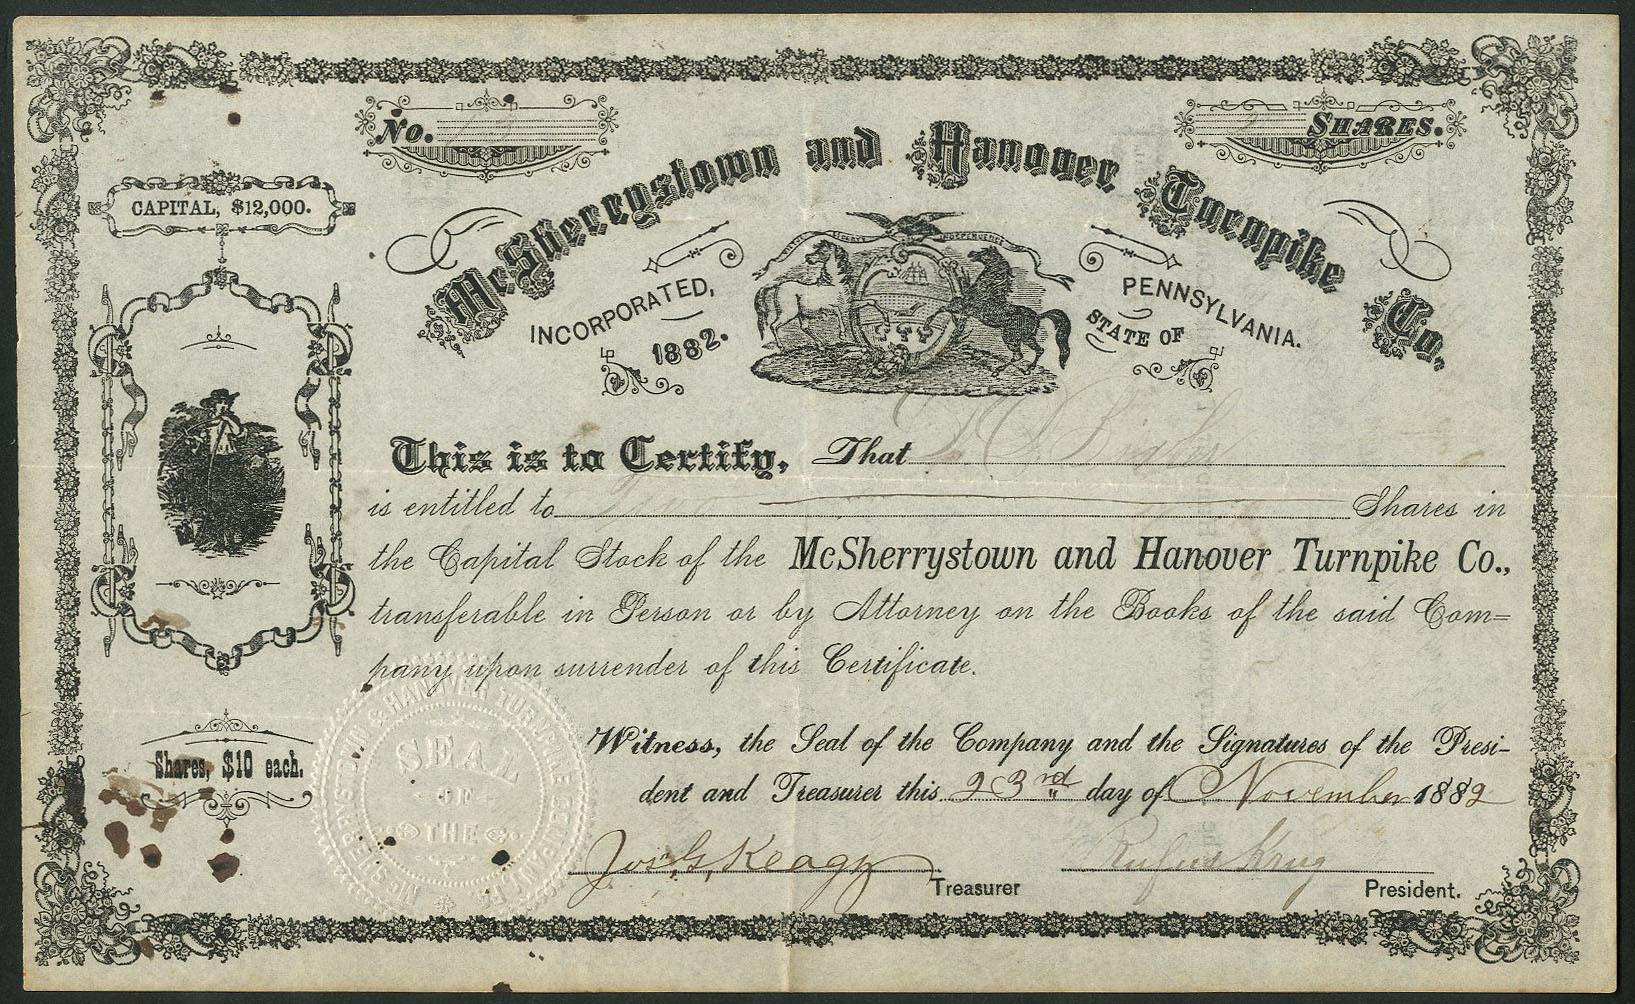 No.
SHARES.
McSherrystown and Hanover Turnpike Co.
CAPITAL, $12,000.
VIRTUE LIBERTY INDEPENDENCE
INCORPORATED, 1882.
STATE OF PENNSYLVANIA.
This is to Certify, That
is entitled to Two Shares in
the Capital Stock of the McSherrystown and Hanover Turnpike Co.,
transferable in Person or by Attorney on the Books of the said Com=
pany upon surrender of this Certificate.
Shares, $10 each.
McSHERRYSTOWN & HANOVER TURNPIKE COMPANY
SEAL
OF
THE
Witness, the Seal of the Company and the Signatures of the Presi-
dent and Treasurer this 23rd day of November 1882
Jos. G. Keagy Rufus Krug
Treasurer President.